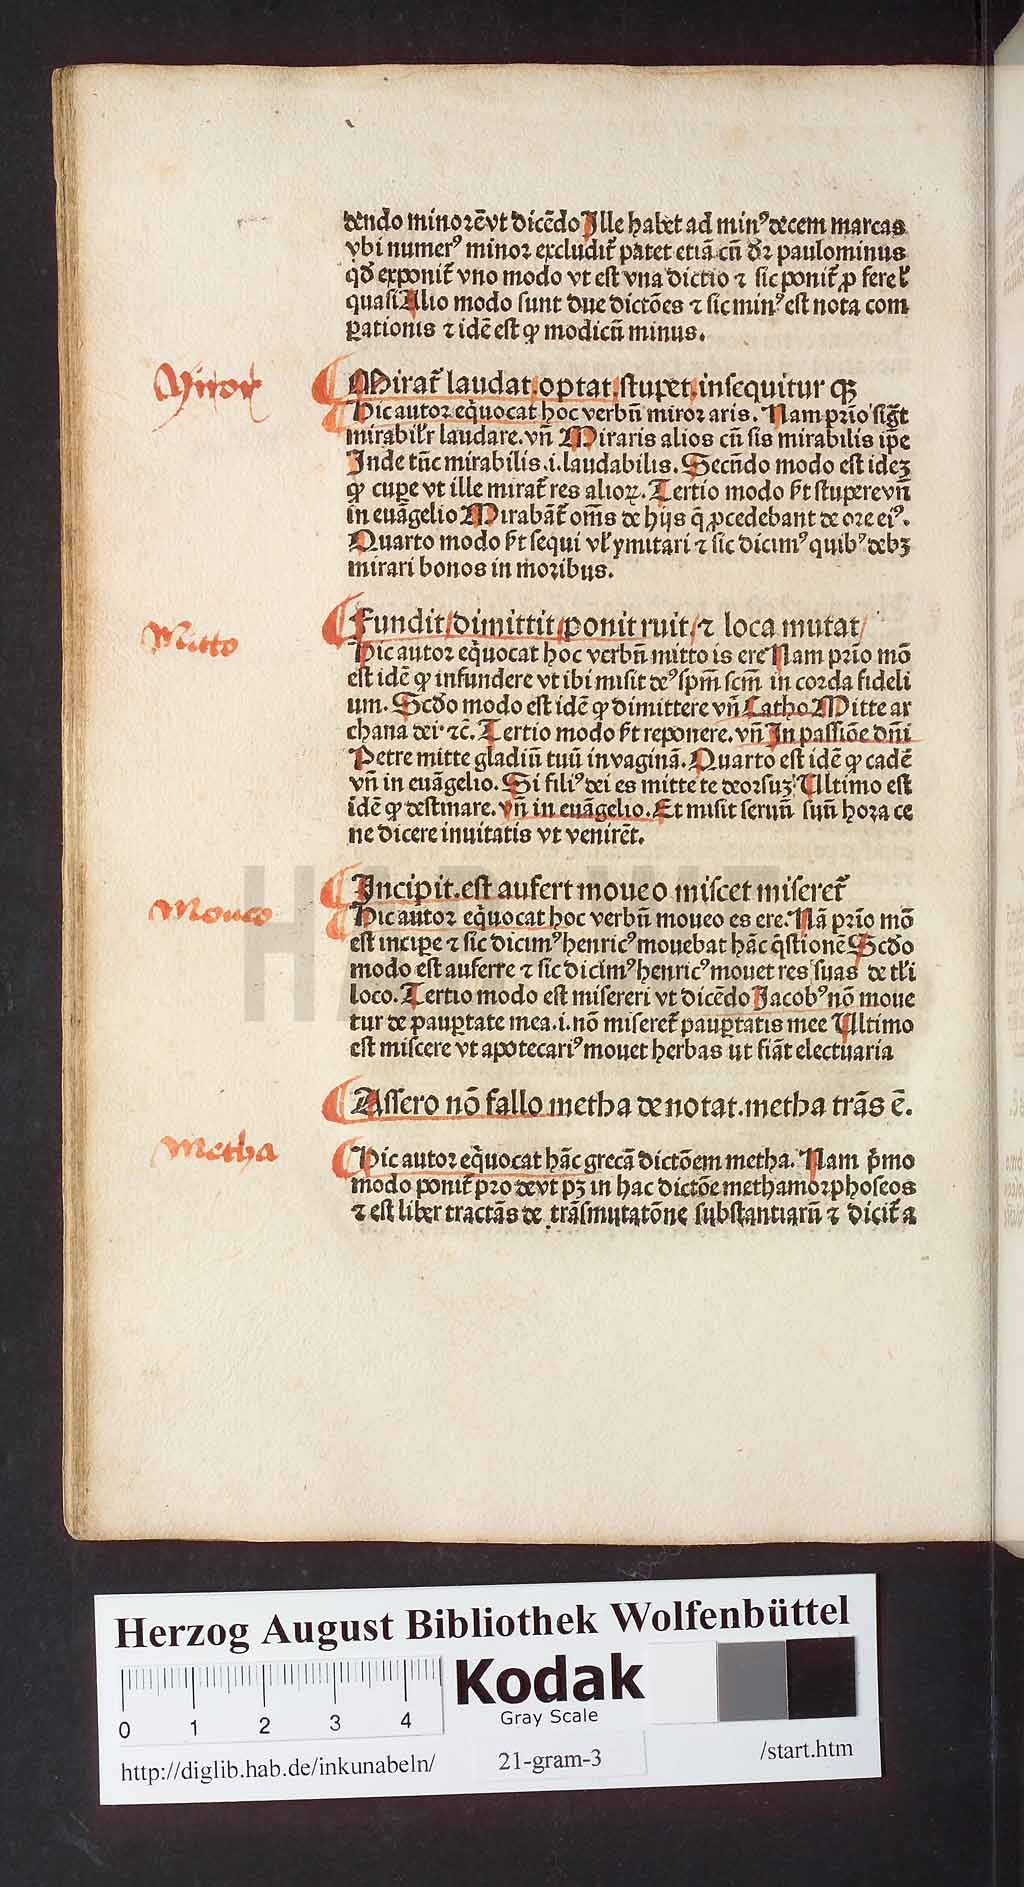 dendo minorēvt dicēdo Jlle habet ad minꝰ decem marcas
vbi numerꝰ minor excludit᷑ patet etiā cū dr̄ paulominus
qd̄ exponit᷑ vno modo vt est vna dictio ⁊ sic ponit᷑ ꝓ fere vl̓
quasi Alio modo sunt due dictōes ⁊ sic minꝰ est nota com
ꝑationis ⁊ idē est ꝙ modicū minus.
Miror
Mirat᷑ laudat.optat.stupet.insequitur qꝫ
Hic autor eq̇uocat hoc verbū miror aris. Nam prīo sigt̄
mirabilr̓ laudare.vn̄ Miraris alios cū sis mirabilis ip̄e
Jnde tūc mirabilis.i.laudabilis. Secūdo modo est ideꝫ
ꝙ cuꝑe vt ille mirat᷑ res alioꝝ. Tertio modo ħt stuperevn̄
in euāgelio Mirabāt᷑ om̄s de hijs q̄ ꝓcedebant de ore eiꝰ.
Quarto modo ħt sequi vl̓ ymitari ⁊ sic dicimꝰ quibꝰ debꝫ
mirari bonos in moribus.
Mitto
Fundit/dimittit/ponit ruit/⁊ loca mutat/
Hic autor eq̇uocat hoc verbū mitto is ere Nam prīo mō
est idē ꝙ infundere vt ibi misit deꝰ spm̄ scm̄ in corda fideli
um. Scd̓o modo est idē ꝙ dimittere vn̄ Catho Mitte ar
chana dei ⁊c̄. Tertio modo ħt reponere. vn̄ Jn passiōe dn̄i
Petre mitte gladiū tuū in vaginā. Quarto est idē ꝙ cadē
vn̄ in euāgelio. Si filiꝰ dei es mitte te deorsuꝫ. Ultimo est
idē ꝙ destinare. vn̄ in euāgelio. Et misit seruū suū hora ce
ne dicere inuitatis vt venirēt.
Moueo
Jncipit.est aufert moueo miscet miseret᷑
Hic autor eq̇uocat hoc verbū moueo es ere. Nā prīo mō
est inciꝑe ⁊ sic dicimꝰ henricꝰ mouebat hāc q̄stionē Scd̓o
modo est auferre ⁊ sic dicimꝰ henricꝰ mouet res suas de tl̓i
loco. Tertio modo est misereri vt dicēdo Jacobꝰ nō moue
tur de pauꝑtate mea.i.nō miseret᷑ pauꝑtatis mee Ultimo
est miscere vt apotecariꝰ mouet herbas ut fiāt electuaria
Assero nō fallo metha denotat.metha trās ē.
Metha
Hic autor eq̇uocat hāc grecā dictōem metha. Nam p̄mo
modo ponit᷑ pro devt pꝫ in hac dictōe methamorphoseos
⁊ est liber tractās de trāsmutatōne substantiarū ⁊ dicit᷑ a
Herzog August Bibliothek Wolfenbüttel
0 1 2 3 4
Kodak
Gray Scale
http://diglib.hab.de/inkunabeln/ 21-gram-3 /start.htm
HAB WF